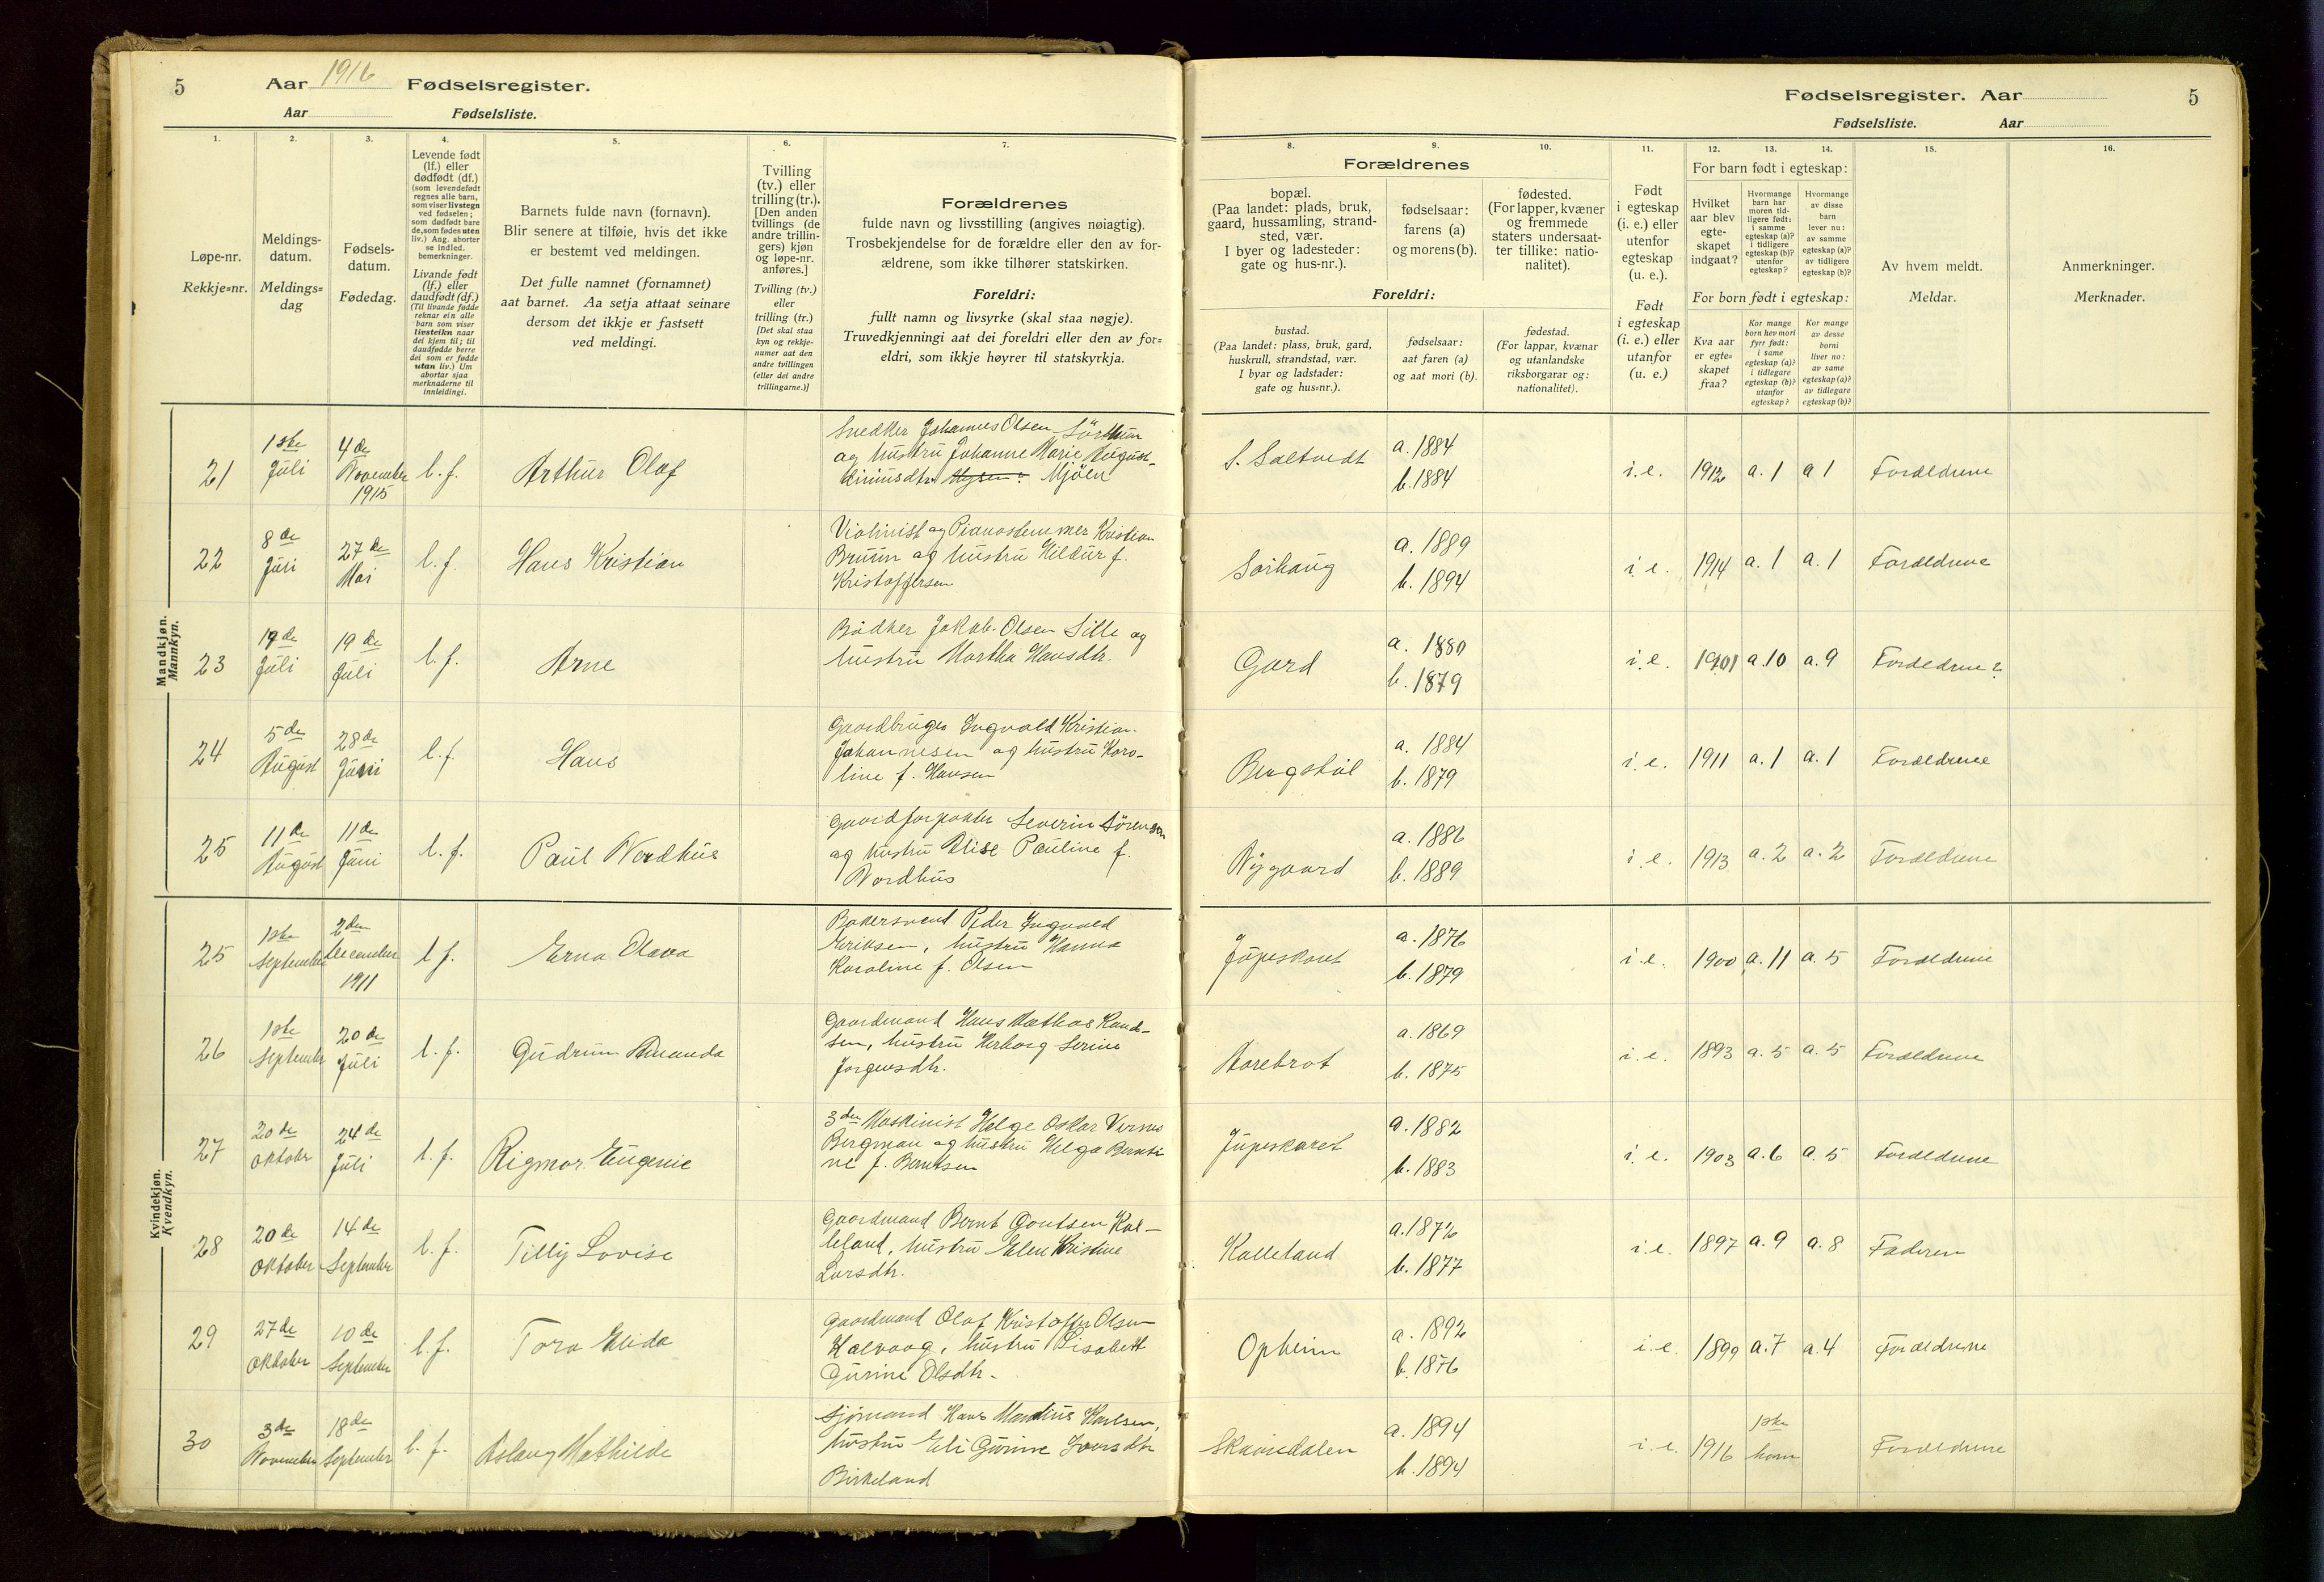 5 Aar 1916 Fødselsregister.
Aar Fødselsliste.
Fødselsregister. Aar 5
Fødselsliste. Aar
1. 2. 3. 4. 5. 6. 7.
8. 9. 10. 11. 12. 13. 14. 15. 16.
Løpe-nr.
Rekkje=nr.
Meldings-
datum.
Meldings=
dag
Fødsels-
datum.
Fødedag.
Levende født
(lf.) eller
dødfødt (df.)
(som levendefødt
regnes alle barn,
som viser livstegn
ved fødselen;
som dødfødt bare
de, som fødes uten
liv.) Ang. aborter
se indled.
bemerkninger.
Livande født
(lf.) eller
daudfødt (df.)
(Til livande fødde
reknar ein alle
barn som viser
livsteikn naar
dei kjem til; til
daudfødde berre
dei som er fødde
utan liv.) Um
abortar sjaa
merknaderne til
innleidingi.
Barnets fulde navn (fornavn).
Blir senere at tilføie, hvis det ikke
er bestemt ved meldingen.
Det fulle namnet (fornamnet)
aat barnet. Aa setja attaat seinare
dersom det ikkje er fastsett
ved meldingi.
Tvilling
(tv.) eller
trilling (tr.).
[Den anden
tvillings (de
andre trillin-
gers) kjøn
og løpe-nr.
anføres.]
Tvilling (tv.)
eller
trilling (tr.)
[Det skal staa
kyn og rekkje-
numer aat den
andre tvillingen
(eller dei andre
trillingarne.)]
Forældrenes
fulde navn og livsstilling (angives nøiagtig).
Trosbekjendelse for de forældre eller den av for-
ældrene, som ikke tilhører statskirken.
Foreldri:
fullt namn og livsyrke (skal staa nøgje).
Truvedkjenningi aat dei foreldri eller den av for=
eldri, som ikkje høyrer til statskyrkja.
Forældrenes
bopæl.
(Paa landet: plads, bruk,
gaard, hussamling, strand-
sted, vær.
I byer og ladesteder:
gate og hus-nr.).
fødselsaar:
farens (a)
og morens (b).
fødested.
(For lapper, kvæner
og fremmede
staters undersaat-
ter tillike: natio-
nalitet).
Foreldri:
bustad.
(Paa landet: plass, bruk, gard,
huskrull, strandstad, vær.
I byar og ladstader:
gate og hus=nr.).
fødselsaar:
aat faren (a)
og aat mori (b).
fødestad.
(For lappar, kvænar
og utanlandske
riksborgarar og:
nationalitet).
Født
i egteskap
(i. e.) eller
utenfor
egteskap
(u. e.).
Født
i egteskap
(i. e.) eller
utanfor
(u. e.)
For barn født i egteskap:
Hvilket
aar blev
egte-
skapet
indgaat?
Hvormange
barn har
moren tid-
ligere født:
i samme
egteskap (a)?
i tidligere
egteskap (b)?
utenfor
egteskap?
Hvormange
av disse
barn
lever nu:
av samme
egteskap (a)?
av tidligere
egteskap (b)?
For born født i egteskap:
Kva aar
er egte=
skapet
fraa?
Kor mange
born hev mori
fyrr født:
i same
egteskap (a)?
i tidlegare
egteskap (b)?
utanfor
egteskap?
Kor mange
av desse
borni
liver no:
av same
egteskap (a)?
av tidlegare
egteskap (b)?
Av hvem meldt.
Meldar.
Anmerkninger.
Merknader.
Mandkjøn.
Mannkyn.
21 1ste Juli 4de November 1915 l. f. Arthur Olaf
Snedker Johannes Olsen Sörthun
og hustru Johanne Marie August-
Mjöen
S. Saltvedt a. 1884 b. 1884 i. e. 1912 a. 1 a 1 Forældrene
22 8de Juli 27de Mai l. f. Hans Kristian
Violinist og Pianostemmer Kristian
Bruun og hustru Hildur f.
Kristoffersen
Sörhaug a. 1889 b. 1894 i. e. 1914 a. 1 a. 1 Forældrene
23 19de Juli 19de Juli l. f. Arne
Bödker Jakob Olsen Sille og
hustru Martha Hansdtr.
Gard a. 1880 b. 1879 i. e. 1901 a 10 a. 9
24 5de August 28de Juni l. f. Hans
Gaardbruger Ingvald Kristian
Johannesen og hustru Karo-
line f. Hansen
a. 1884 b. 1879 i. e. 1911 a. 1 a. 1 Forældrene
25 11de August 11de Juni l. f. Paul Nordhus
Gaardforpakter Severin Sörensen
og hustru Elise Pauline f.
Nordhus
Nygaard a. 1886 b. 1889 i e. 1913 a. 2 a. 2 Forældrene
Kvindekjøn.
Kvendkyn.
25 1ste September 2den December 1911 l f. Erna Olava
Bakersvend Peder Ingvald
Eriksen, hustru Hanna
Karoline f. Olsen
a. 1876 b. 1879 i. e. 1900 a. 11 a. 5 Forældrene
26 1ste September 20de Juli l. f. Gudrun Amanda
Gaardmand Hans Mathias Rand-
sen, hustru Herborg Serine
Jorgensdtr.
Aarebrot a. 1869 b. 1875 i. e. 1893 a. 5 a. 5 Forældrene
27 20de Oktober 24de Juli l. f. Rigmor Eugenie
3die Maskinist Helge Oskar Verner
Bergman og hustru Helga Bernti
ne f. Berntsen
Jupeskaret a. 1882 b. 1883 i. e. 1903 a. 6 a. 5 Forældrene
28 20de Oktober 14de September l. f. Tilly Lovise
Gaardmand Bernt Goutsen Kal-
leland, hustru Elen Kristine
Larsdtr.
Kalleland a. 1872 b. 1877 i. e. 1897 a. 9 a. 8 Faderen
29 27de Oktober 10de September l. f. Tora Elida
Gaardmand Olaf Kristoffer Olsen
Kalvaag, hustru Lisabett
Gurine Olsdtr.
Opheim a. 1892 b. 1876 i. e. 1899 a. 7 a. 4 Forældrene
30 3de November 18de September l. f. Aslaug Mathilde
Sjömand Hans Mandius Karlsen,
hustru Eli Gurine Iversdtr
Birkeland
Skaredalen a. 1894 b. 1894 i. e. 1916 1ste barn Forældrene